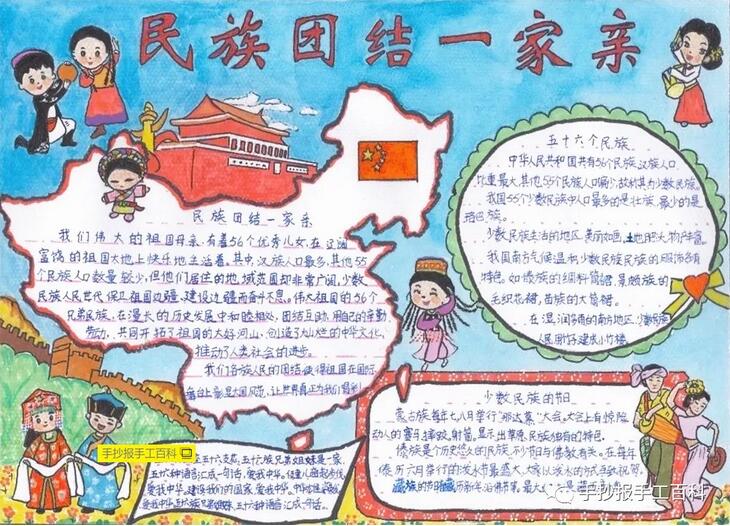 民族团结一家亲
民族团结一家亲
我们伟大的祖国母亲,有着56个优秀儿女,在辽阔
富饶的祖国大地上快乐地生活着。其中汉族人口最多,其他55
个民族人口数量较少,但他们居住的地域范围却非常广阔,少数
民族人民世代保卫祖国边疆、建设边疆而奋斗不息。伟大祖国的56个
兄弟民族,在漫长的历史发展中和睦相处,团结互助,用自己的辛勤
劳动,共同开拓了祖国的大好河山,创造了灿烂的中华文化,
推动了人类社会的进步。
我们各族人民的团结使得祖国在国际
舞台上彰显大国风范,让世界真正为我们喝彩!
五十六个民族
中华人民共和国共有56个民族,汉族人口
比重最大,其他55个民族人口偏少,故材其为少数民族。
我国55个少数民族中人口最多的是壮族,最少的是
珞巴族。
少数民族生活的地区,美丽如画,土地肥沃,物产富。
我国南方气候温和,少数民族民族的服饰各有
特色。如傣族的细料筒裙,景颇族的
毛织花裙,苗族的大筒裙。
在湿润多雨的南方地区,少数民族
人民用竹子建成小竹楼。
少数民族的节日
蒙古族每年七八月举行"那达慕"大会。大会上有惊险
动人的赛马、摔跤、射箭,显示出草原民族独有的特色。
傣族是个历史悠久的民族,不少节日与佛教有关。在每年
傣历六月举行的泼水节最盛大,大家以泼水的方式互致祝节。
五十六支花,五十六族兄弟姐妹是一家,
五十六种语言汇成一句话,爱我中华
爱我中华,建设我们的国家,爱我中华
五十六种语言汇成一句话。
手抄报手工百科
手抄报手工百科